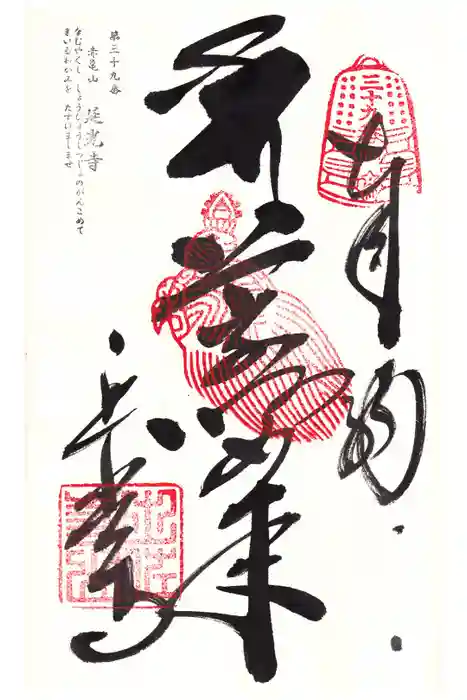 三十九
奉納
薬師如来
延光寺
第三十九番
赤亀山 延光寺
なむやくし しょびょうしつじょのがんこめて
まいるわがみを たすけましませ